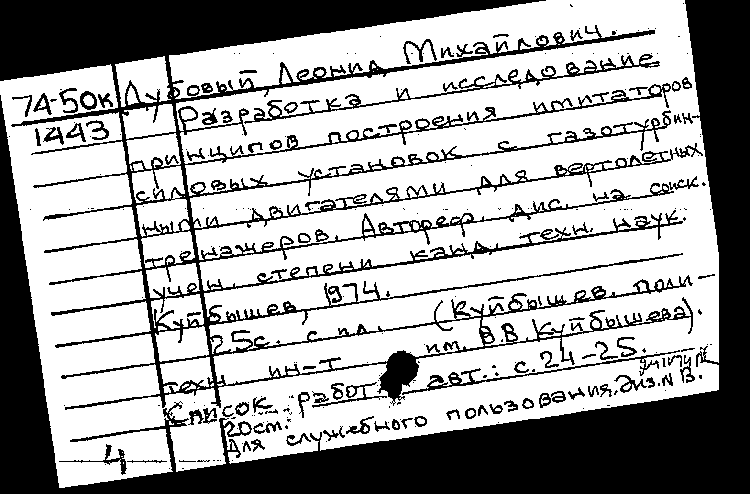 74-50к Дубовый, Леонид Михайлович.
1443 Разработка и исследование
принципов построения имитаторов
силовых установок с газотурбин-
ными двигателями для вертолетных
тренажеров. Автореф. дис. на соиск.
учен. степени канд. техн. наук.
Куйбышев, 1974.
25с. с ил. (Куйбышев. поли-
техн. ин-т им. В.В. Куйбышева).
Список работ авт.: с. 24-25.
20см.
Для служебного пользования. Экз. N 13.
4